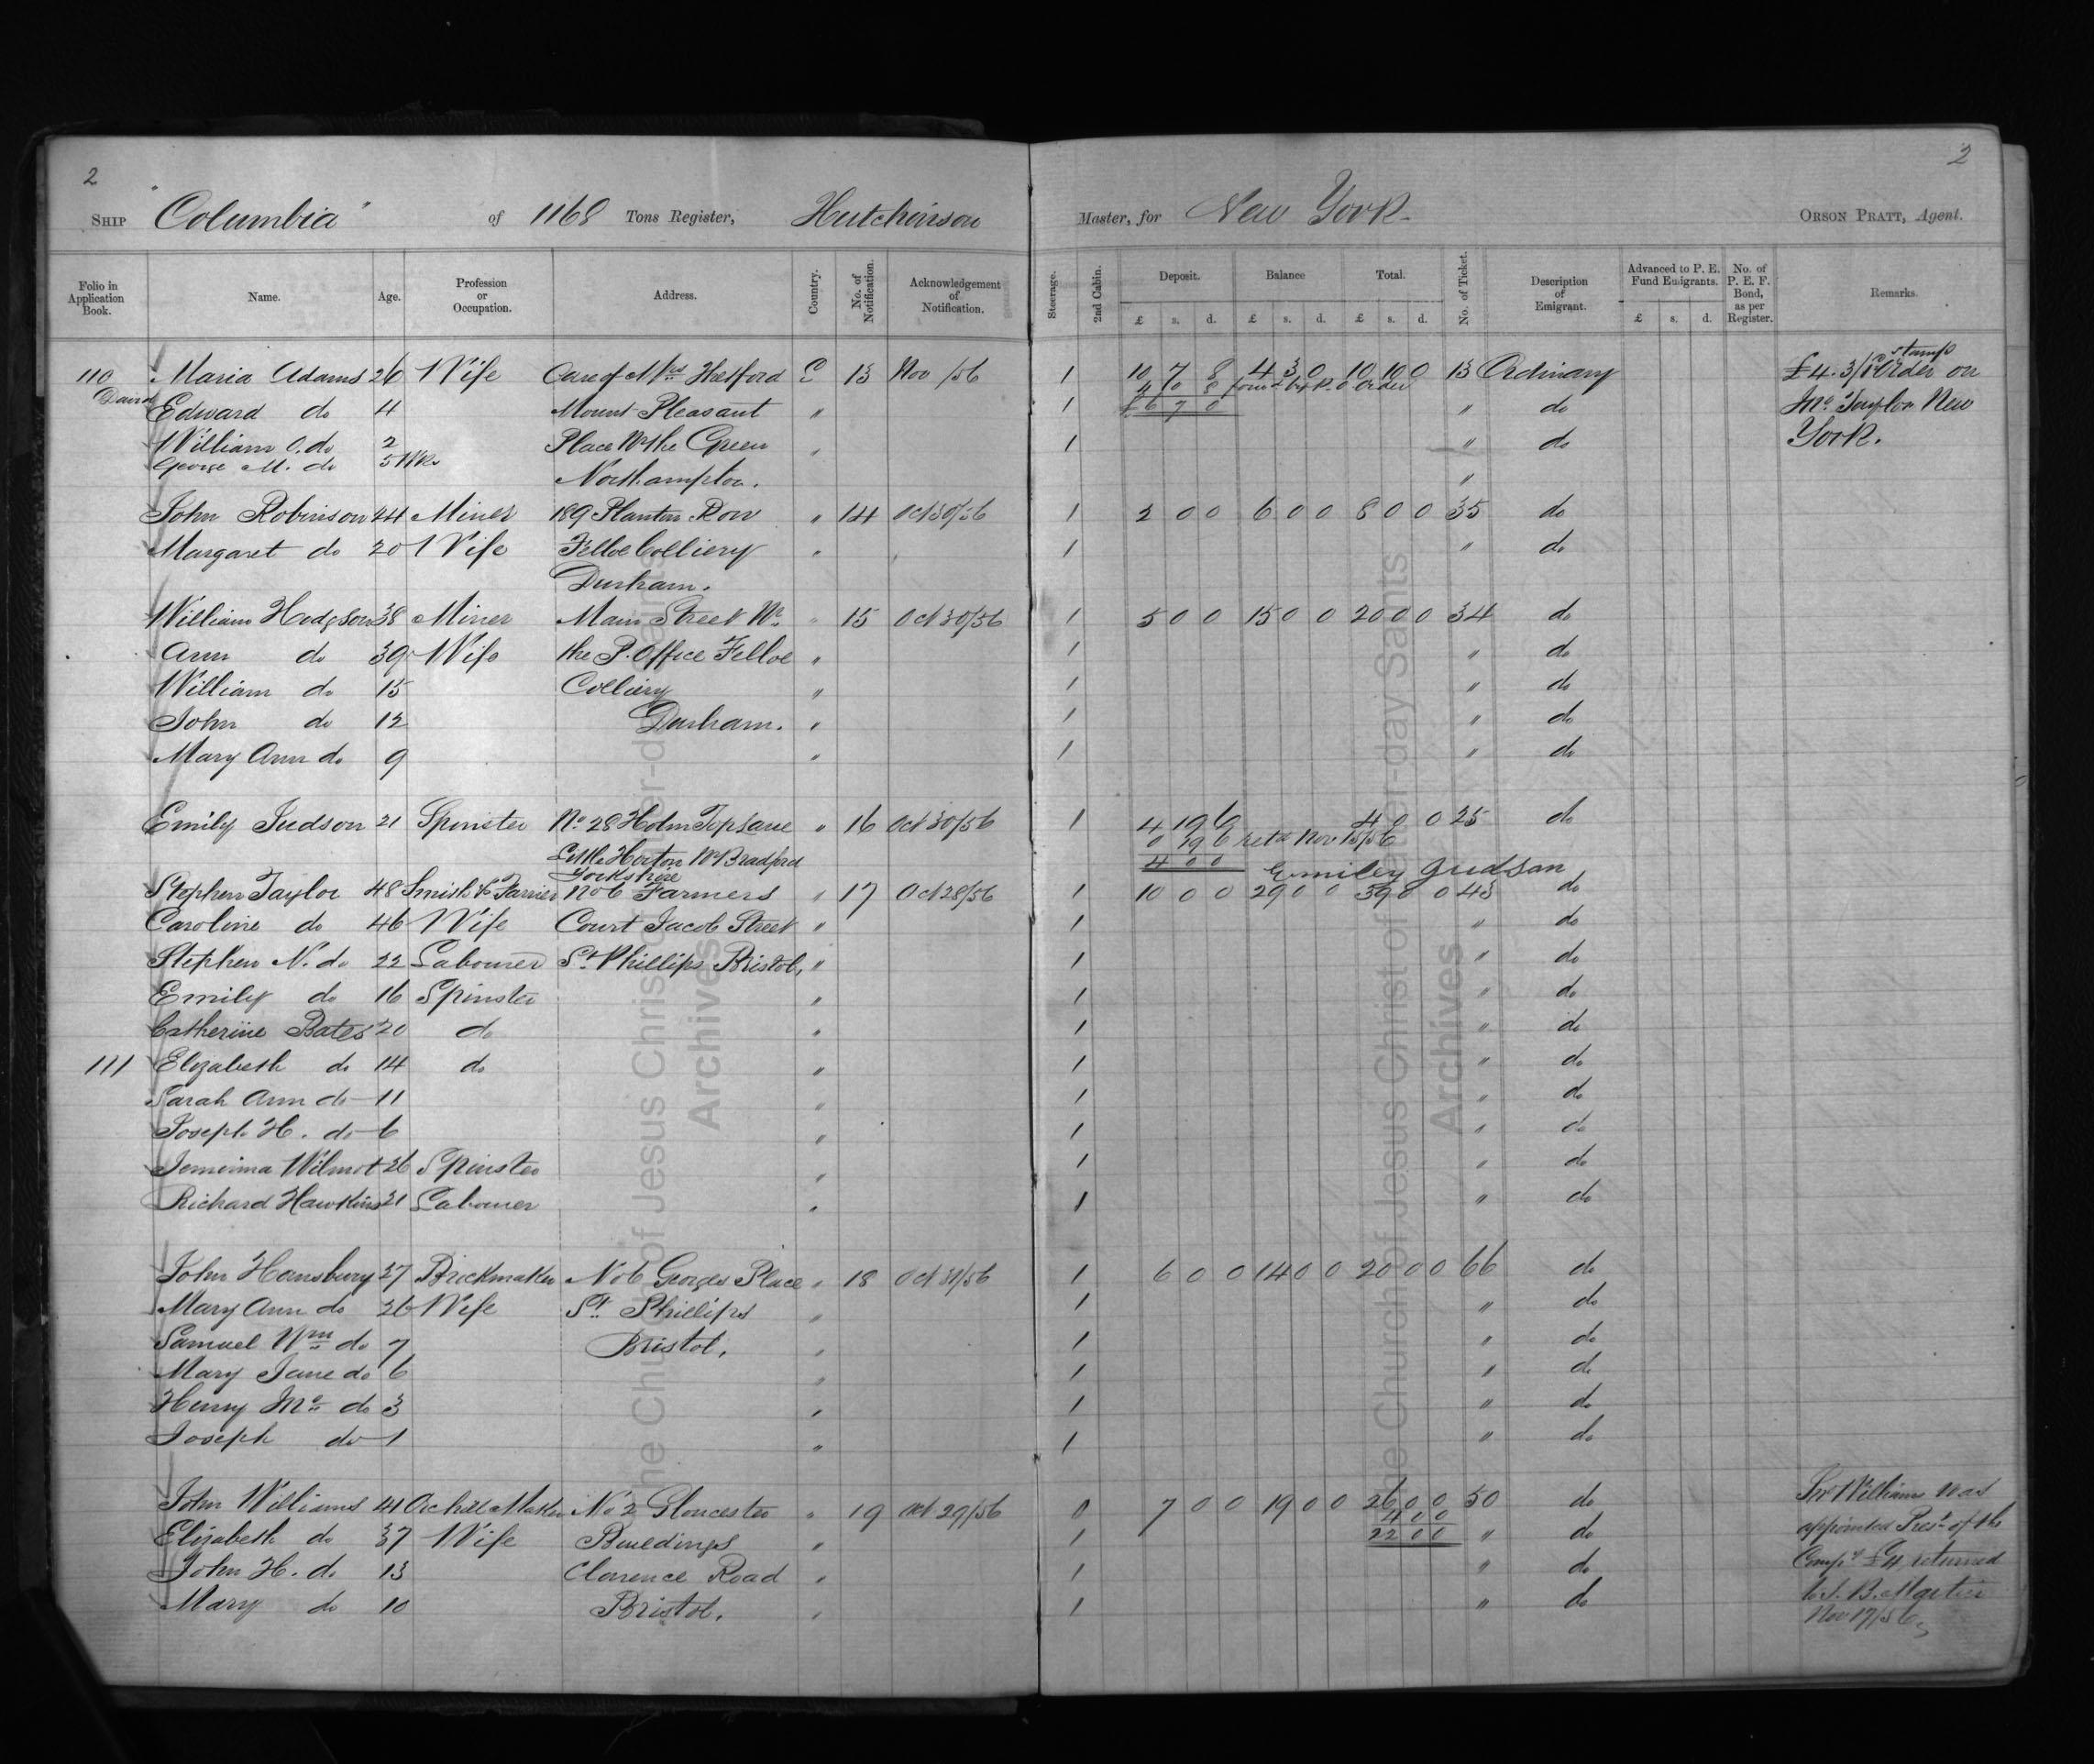 2 2
SHIP "Columbia" of 1168 Tons Register, Hutchinson Master, for New York. ORSON PRATT, Agent.
Folio in Application Book. Name. Age. Profession or Occupation. Address. Country. No. of Notification. Acknowledgement of Notification. Steerage. 2nd Cabin. Deposit. Balance Total. No. of Ticket. Description of Emigrant. Advanced to P. E. Fund Emigrants. No. of P. E. F. Bond, as per Register. Remarks.
£ s. d. £ s. d. £ s. d. £ s. d.
110 Maria Adams 26 Wife Care of Mrs Hefford E 13 Nov /56 1 10 7 8 4 3 0 10 10 0 13 Ordinary £4.3/ Order on
stamp
4 0 8 P. O Order
David Edward do 4 Mount Pleasant " 1 £6 7 0 " do Jno Taylor New
William C. do 2 Place Nr the Green " 1 " do York.
George M. do 5 Wks Northampton. "
John Robinson 44 Miner 189 Planten Row " 14 Oct 30/56 1 2 0 0 6 0 0 8 0 0 35 do
Margaret do 20 Wife Felloe Colliery " 1 " do
Durham.
William Hodgson 38 Miner Main Street Nr " 15 Oct 30/56 1 5 0 0 15 0 0 20 0 0 34 do
Ann do 39 Wife the P. Office Felloe " 1 " do
William do 15 Colliery " 1 " do
John do 12 Durham. " 1 " do
Mary Ann do 9 " 1 " do
Emily Judson 21 Spinster No 28 Holm Top Lane " 16 Oct 30/56 1 4 19 6 4 0 0 25 do
0 19 6 retd Nov 15/56
Little Horton Nr Bradford 4 0 0 Emiley Judson
Yorkshire
Stephen Taylor 48 Smith & Farrier No 6 Farmers " 17 Oct 28/56 1 10 0 0 29 0 0 39 0 0 43 do
Caroline do 46 Wife Court Jacob Street " 1 " do
Stephen N. do 22 Labourer St Phillips Bristol, " 1 " do
Emily do 16 Spinster " 1 " do
Catherine Bates 20 do " 1 " do
111 Elizabeth do 14 do " 1 " do
Sarah Ann do 11 " 1 " do
Joseph H. do 6 " 1 " do
Jemeima Wilmot 26 Spinster " 1 " do
Richard Hawkins 21 Labourer " 1 " do
John Hansbury 27 Brickmaker No 6 Georges Place " 18 Oct 31/56 1 6 0 0 14 0 0 20 0 0 66 do
Mary Ann do 26 Wife St. Phillips " 1 " do
Samuel Wm do 7 Bristol, " 1 " do
Mary Jane do 6 " 1 " do
Henry Jno do 3 " 1 " do
Joseph do 1 " 1 " do
John Williams 41 Maker No 2 Gloucester " 19 Oct 29/56 0 7 0 0 19 0 0 26 0 0 50 do Jno Williams was
4 0 0
Elizabeth do 37 Wife Buildings " 1 22 0 0 " do appointed Prest of the
John H. do 13 Clarence Road " 1 " do Compy £4 returned
Mary do 10 Bristol. " 1 " do to J. B. Martin
Nov 17/56
The Church of Jesus Christ of Latter-day Saints
Archives
The Church of Jesus Christ of Latter-day Saints
Archives